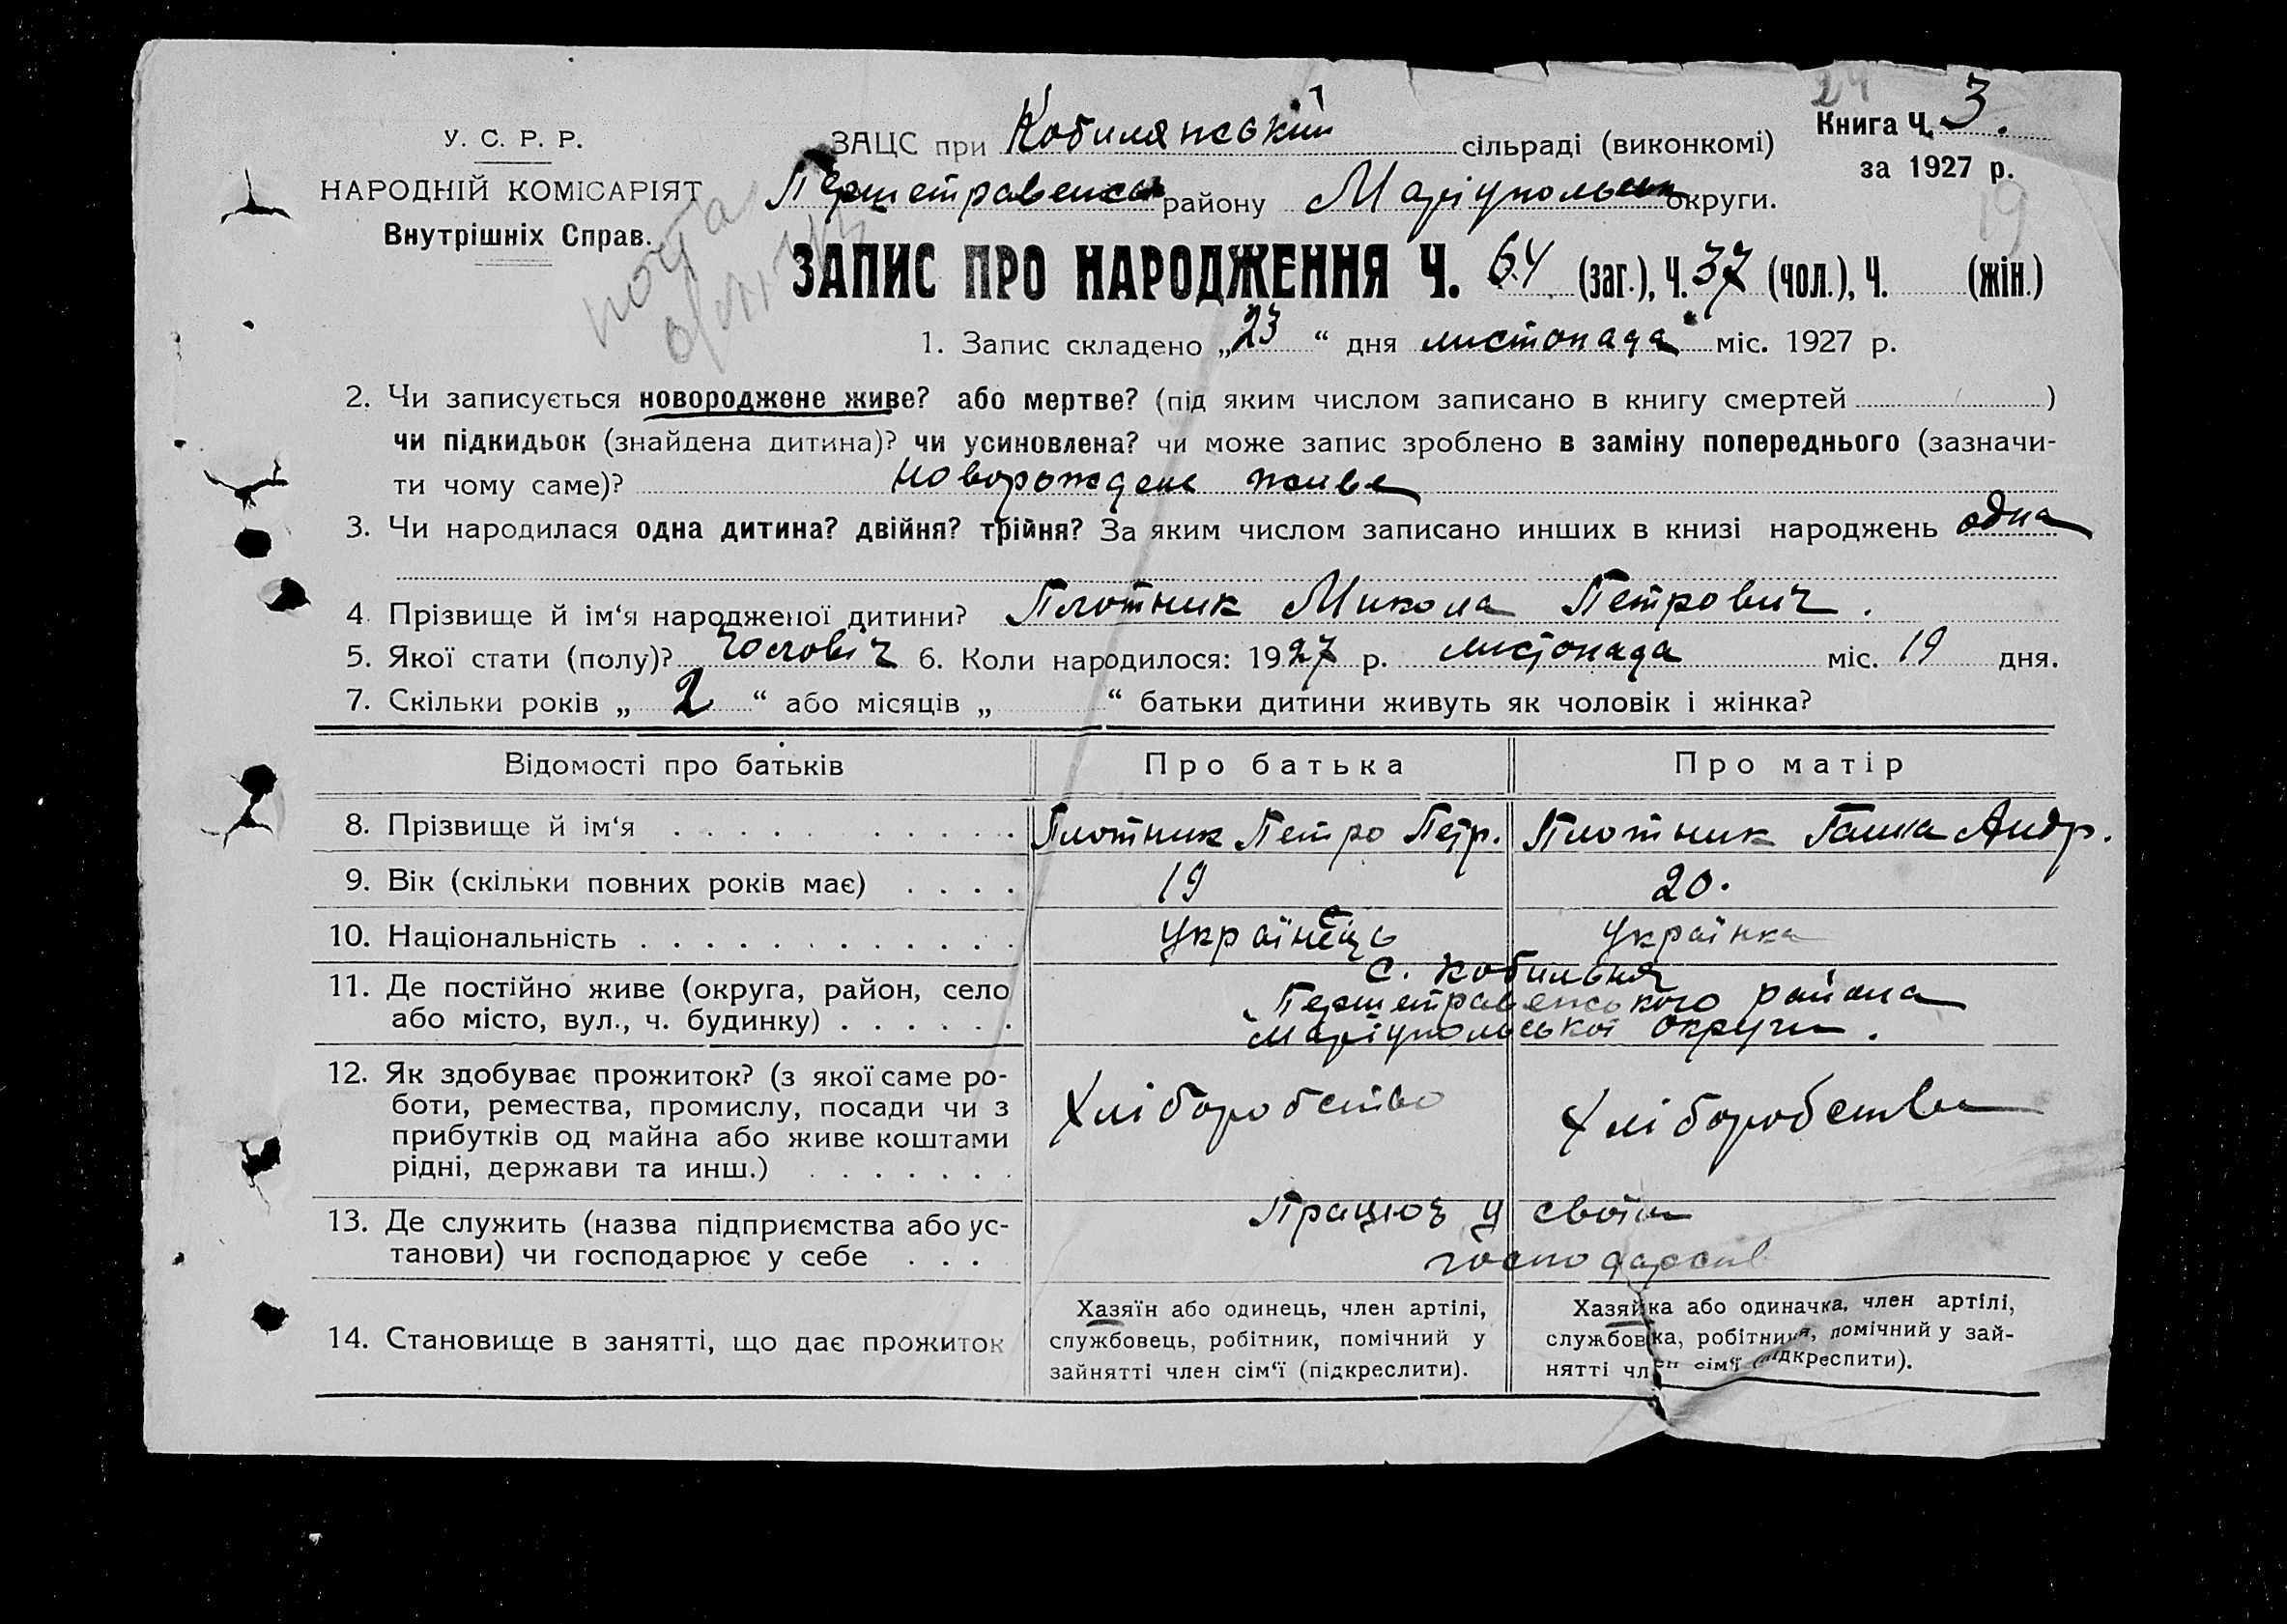 24
У. С. Р. Р.
НАРОДНІЙ КОМІСАРІЯТ
Внутрішніх Справ.
ЗАЦС при Кобилянській сільраді (виконкомі)
Першетравенськ району Маріупольськ округи.
Книга Ч. 3.
за 1927 р.
19
ЗАПИС ПРО НАРОДЖЕННЯ Ч. 64 (заг.), Ч. 37 (чол.), Ч. (жін.)
1. Запис складено „23“ дня листопада міс. 1927 р.
2. Чи записується новороджене живе? або мертве? (під яким числом записано в книгу смертей )
чи підкидьок (знайдена дитина)? чи усиновлена? чи може запис зроблено в заміну попереднього (зазначи-
ти чому саме)? новорожденє живе
3. Чи народилася одна дитина? двійня? трійня? За яким числом записано инших в книзі народжень одна
4. Прізвище й ім‘я народженої дитини? Плотник Микола Петрович.
5. Якої стати (полу)? чоловіч 6. Коли народилося: 1927 р. листопада міс. 19 дня.
7. Скільки років „ 2 “ або місяців „ “ батьки дитини живуть як чоловік і жінка?
Відомості про батьків Про батька Про матір
8. Прізвище й ім‘я Плотник Петро Петр. Плотник Ганна Андр.
9. Вік (скільки повних років має) 19 20.
10. Національність Українець Українка
11. Де постійно живе (округа, район, село
або місто, вул., ч. будинку)
с. Кобильня
Першетравенського района
Маріупольської округи.
12. Як здобуває прожиток? (з якої саме ро-
боти, ремества, промислу, посади чи з
прибутків од майна або живе коштами
рідні, держави та инш.)
Хліборобство Хліборобство
13. Де служить (назва підприємства або ус-
танови) чи господарює у себе
Працює у своїм
господарстві
14. Становище в занятті, що дає прожиток
Хазяїн або одинець, член артілі,
службовець, робітник, помічний у
зайнятті член сім‘ї (підкреслити).
Хазяйка або одиначка, член артілі,
службовка, робітниця, помічний у зай-
нятті член сім‘ї (підкреслити).